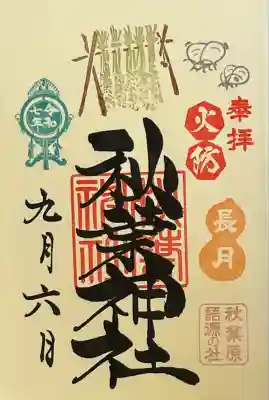 奉拝
火防
長月
秋葉原
語源の社
秋葉神社
令和
七年
九月六日